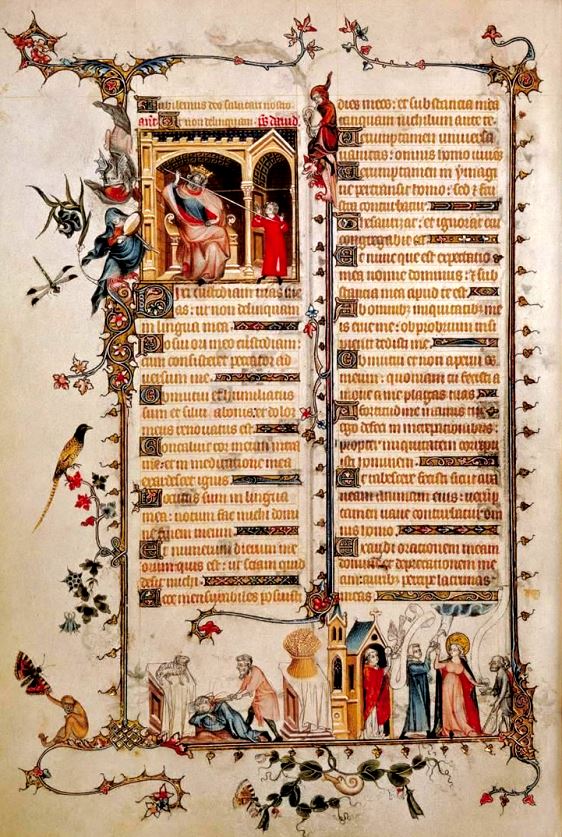 Iubilemus deo salutari nostro
ant. Ut non delinquam. ps. dauid
Dixi custodiam uias me
as: ut non delinquam
in lingua mea
Posui ori meo custodiam:
cum consisteret peccator ad
uersum me
Obmutui et humiliatus
sum et silui a bonis: et dolor
meus renouatus est
Concaluit cor meum intra
me: et in meditatione mea
exardescet ignis
Locutus sum in lingua
mea: notum fac michi domi
ne finem meum
Et numerum dierum me
orum quis est: ut sciam quid
desit michi
Ecce mensurabiles posuisti
dies meos: et substantia mea
tanquam nichilum ante te
Uerumptamen uniuersa
uanitas: omnis homo uiuens
Uerumptamen in ymagi
ne pertransit homo: sed et frus
tra conturbatur
Thesaurizat: et ignorat cui
congregabit ea
Et nunc que est expectatio
mea nonne dominus: et sub
stantia mea apud te est
Ab omnibus iniquitatibus me
is erue me: obprobrium insi
pienti dedisti me
Obmutui et non aperui os
meum: quoniam tu fecisti a
moue a me plagas tuas
A fortitudine manus tue
ego defeci in increpationibus:
propter iniquitatem corripu
isti hominem
Et tabescere fecisti sicut ara
neam animam eius: uerump
tamen uane conturbatur om
nis homo
Exaudi orationem meam
domine et deprecationem me
am: auribus percipe lacrimas
meas